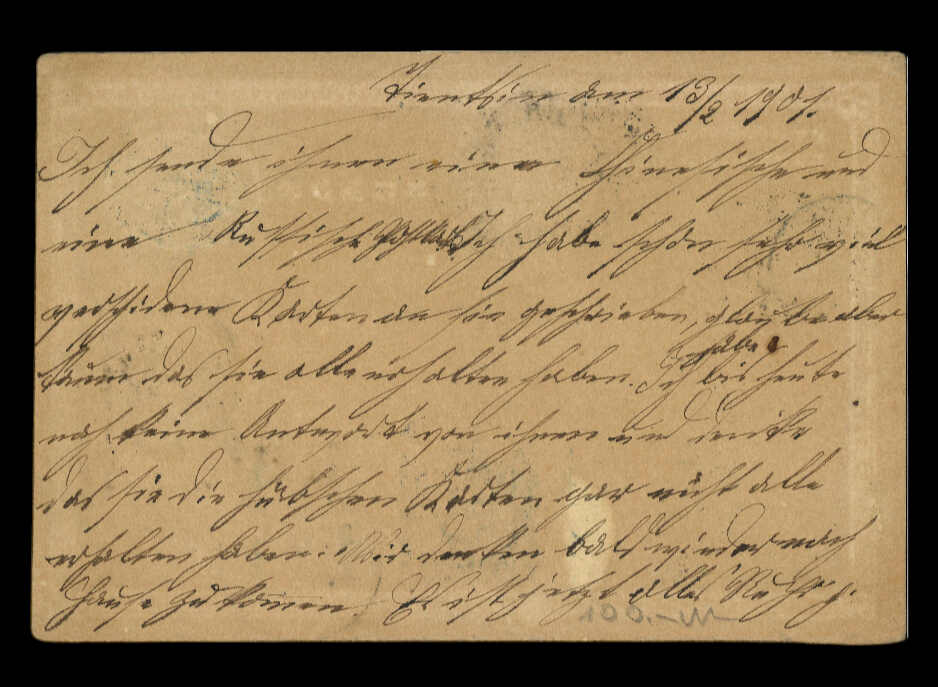 Tientsin am 13/2 1901.
Ich sende ihnen eine Chinesische und
eine Russische Ich habe schon sehr viel
verschidene Karten an sie geschrieben, glaube aber
kaum das sie alle erhalten haben. Ich habe bis heute
noch keine Antwort von ihnen und denke
das sie die hübschen Karten gar nicht alle
erhalten haben. Wir denken bald wieder nach
Hause zu komen. Es ist jetzt alles Ruhig.
100.-